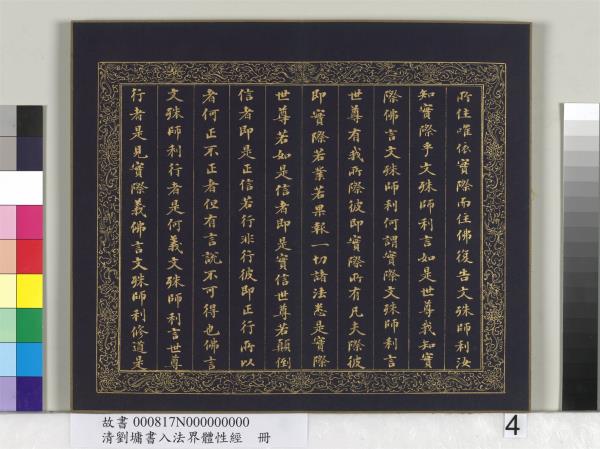 所住唯依實際而住佛復告文殊師利汝
知實際乎文殊師利言如是世尊我知實
際佛言文殊師利何謂實際文殊師利言
世尊有我所際彼即實際所有凡夫際彼
即實際若業若果報一切諸法悉是實際
世尊若如是信者即是實信世尊若顛倒
信者即是正信若行非行彼即正行所以
者何正不正者但有言說不可得也佛言
文殊師利行者是何義文殊師利言世尊
行者是見實際義佛言文殊師利修道是
故書 000817N000000000
清劉墉書入法界體性經 冊
4